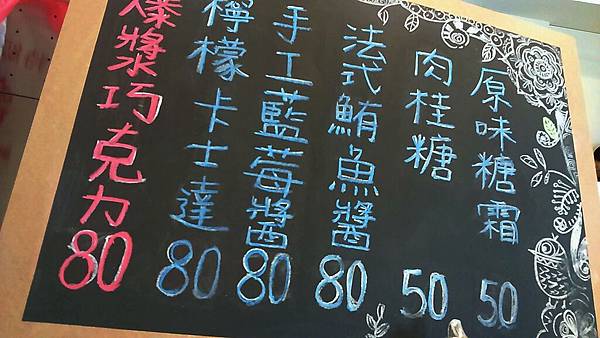 原味糖霜 50
肉桂糖 50
法式鮪魚醬 80
手工藍莓醬 80
檸檬卡士達 80
爆漿巧克力 80